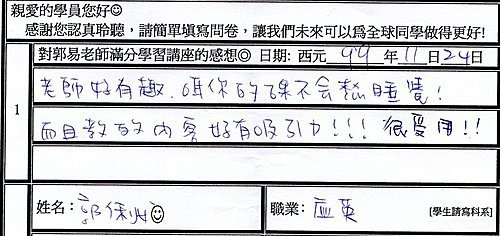 親愛的學員您好☺
感謝您認真聆聽，請簡單填寫問卷，讓我們未來可以為全球同學做得更好!
對郭易老師滿分學習講座的感想◎ 日期: 西元 99 年 11 月 24 日
1
老師好有趣,唔你的課不会想睡覺!
而且教的內容好有吸引力!!! 很受用!!
姓名: 郭 ☺
職業: 应英 [學生請寫科系]